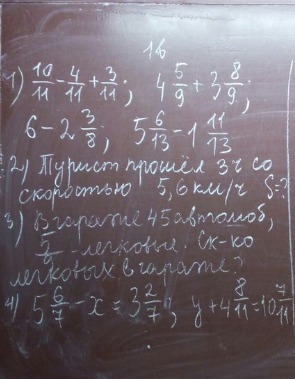 1в
1) 10/11 - 4/11 + 3/11; 4 5/9 + 3 8/9;
6 - 2 3/8; 5 6/13 - 1 11/13
2) Турист прошёл 3 ч со
скоростью 5,6 км/ч S=?
3) В гараже 45 автомоб,
легковые. Ск-ко
легковых в гараже?
4) 5 6/7 - x = 3 2/7; y + 4 8/11 = 10 7/11